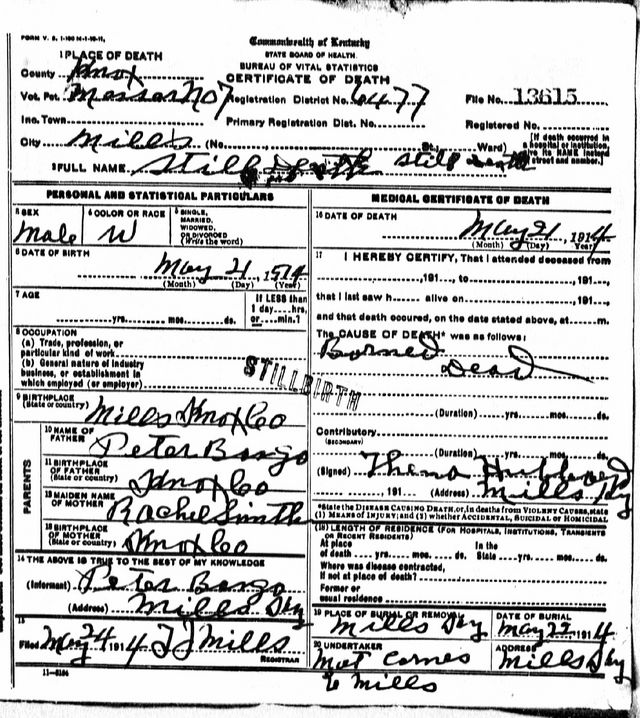 FORM V. S. 1-100 M-1-10-11.
Commonwealth of Kentucky
STATE BOARD OF HEALTH.
BUREAU OF VITAL STATISTICS
CERTIFICATE OF DEATH
1 PLACE OF DEATH
County Knox
Vot. Pct. Messer No 7 Registration District No. 6477 File No. 13615
Inc. Town Primary Registration Dist. No. Registered No.
City Mills (No. St., Ward) [If death occurred in a hospital or institution, give its NAME instead of street and number.]
2 FULL NAME Still Death still death
PERSONAL AND STATISTICAL PARTICULARS
3 SEX Male
4 COLOR OR RACE W
5 SINGLE, MARRIED, WIDOWED, OR DIVORCED (Write the word)
6 DATE OF BIRTH May 21 1914
(Month) (Day) (Year)
7 AGE
yrs. mos. ds.
If LESS than 1 day hrs. or min.?
8 OCCUPATION
(a) Trade, profession, or particular kind of work
(b) General nature of industry business, or establishment in which employed (or employer)
STILLBIRTH
9 BIRTHPLACE (State or country) Mills Knox Co
PARENTS
10 NAME OF FATHER Peter Bargo
11 BIRTHPLACE OF FATHER (State or country) Knox Co
12 MAIDEN NAME OF MOTHER Rachel Smith
13 BIRTHPLACE OF MOTHER (State or country) Knox Co
14 THE ABOVE IS TRUE TO THE BEST OF MY KNOWLEDGE
(Informant) Peter Bargo
(Address) Mills Ky
15
Filed May 24 1914 J J Mills
REGISTRAR
11-5184
MEDICAL CERTIFICATE OF DEATH
16 DATE OF DEATH May 21, 1914
(Month) (Day) Year)
17 I HEREBY CERTIFY, That I attended deceased from
, 191 , to , 191 ,
that I last saw h alive on , 191 ,
and that death occured, on the date stated above, at m.
The CAUSE OF DEATH* was as follows:
Borned
Dead
(Duration) yrs. mos. ds.
Contributory
(SECONDARY)
(Duration) yrs. mos. ds.
(Signed) Thena
, 191 (Address) Mills Ky
*State the DISEASE CAUSING DEATH, or, in deaths from VIOLENT CAUSES, state (1) MEANS OF INJURY; and (2) whether ACCIDENTAL, SUICIDAL or HOMICIDAL
(18) LENGTH OF RESIDENCE (FOR HOSPITALS, INSTITUTIONS, TRANSIENTS OR RECENT RESIDENTS)
At place of death yrs. mos. ds. In the State yrs. mos. ds.
Where was disease contracted,
If not at place of death?
Former or
usual residence
19 PLACE OF BURIAL OR REMOVAL Mills Ky
DATE OF BURIAL May 22 1914
20 UNDERTAKER Mat Carnes
ADDRESS Mills Ky
Mills